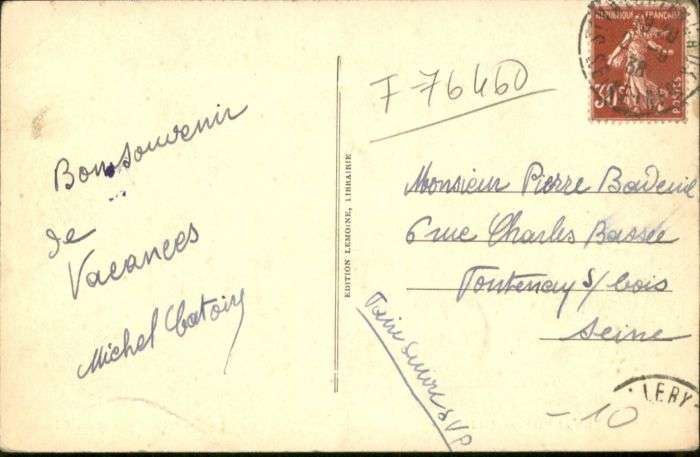 Bon souvenir
de
Vacances
Michel Catoire
EDITION LEMOINE, LIBRAIRIE
F 76460
REPUBLIQUE FRANÇAISE
30
POSTES
38
Monsieur Pierre Bodeuil
6 rue Charles Bassée
Fontenay s/bois
Seine
Faire suivre SVP
LERY
-10